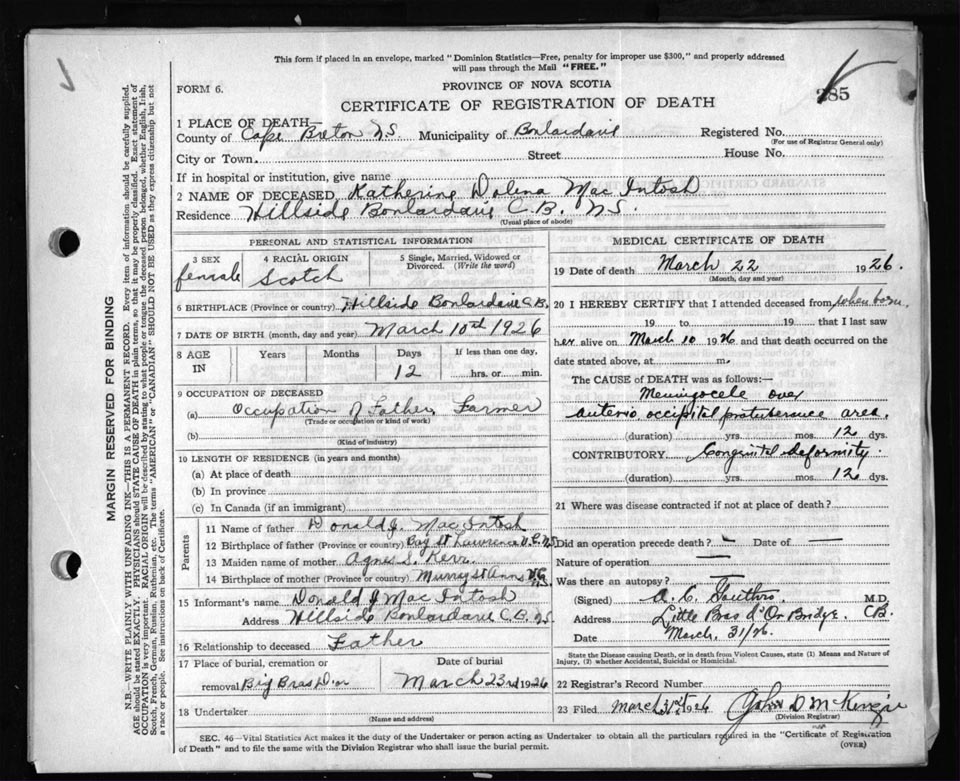 This form if placed in an envelope, marked "Dominion Statistics—Free, penalty for improper use $300," and properly addressed
will pass through the Mail "FREE."
FORM 6.
PROVINCE OF NOVA SCOTIA
CERTIFICATE OF REGISTRATION OF DEATH
285
1 PLACE OF DEATH—
County of Cape Breton N.S. Municipality of Boulardarie Registered No.
(For use of Registrar General only)
City or Town. Street House No.
If in hospital or institution, give name
2 NAME OF DECEASED Katherine Dolena Mac Intosh
Residence Hillside Boulardarie C.B. N.S.
(Usual place of abode)
PERSONAL AND STATISTICAL INFORMATION
3 SEX female
4 RACIAL ORIGIN Scotch
5 Single, Married, Widowed or Divorced. (Write the word)
6 BIRTHPLACE (Province or country) Hillside Boulardarie C.B.
7 DATE OF BIRTH (month, day and year) March 10th 1926
8 AGE IN Years Months Days 12 If less than one day, hrs. or min.
9 OCCUPATION OF DECEASED
(a) Occupation of Father Farmer
(Trade or occupation or kind of work)
(b)
(Kind of industry)
10 LENGTH OF RESIDENCE (in years and months)
(a) At place of death
(b) In province
(c) In Canada (if an immigrant)
Parents
11 Name of father Donald J. Mac Intosh
12 Birthplace of father (Province or country) Bay St Lawrence V.C. N.S.
13 Maiden name of mother Agnes S. Kerr
14 Birthplace of mother (Province or country) Murray St Anns V.C. N.S.
15 Informant's name Donald J Mac Intosh
Address Hillside Boulardarie C.B. N.S.
16 Relationship to deceased Father
17 Place of burial, cremation or removal Big Bras D'or
Date of burial March 23rd 1926
18 Undertaker
(Name and address)
MEDICAL CERTIFICATE OF DEATH
19 Date of death March 22 1926.
(Month, day and year)
20 I HEREBY CERTIFY that I attended deceased from when born.
19 to 19 that I last saw
her alive on March 10 1926 and that death occurred on the
date stated above, at m.
The CAUSE OF DEATH was as follows:—
Meningocele over
anterio occipital protuberance area.
(duration) yrs. mos. 12 dys.
CONTRIBUTORY. Congenital deformity.
(duration) yrs. mos. 12 dys.
21 Where was disease contracted if not at place of death?
Did an operation precede death? — Date of —
Nature of operation —
Was there an autopsy? —
(Signed) A. C. M.D.
Address Little Bras d'Or Bridge. C.B.
Date March, 31/26.
State the Disease causing Death, or in death from Violent Causes, state (1) Means and Nature of
Injury, (2) whether Accidental, Suicidal or Homicidal.
22 Registrar's Record Number
23 Filed March 31st 1926 John D McKenzie
(Division Registrar)
SEC. 46—Vital Statistics Act makes it the duty of the Undertaker or person acting as Undertaker to obtain all the particulars required in the "Certificate of Registration
of Death" and to file the same with the Division Registrar who shall issue the burial permit.
(OVER)
MARGIN RESERVED FOR BINDING
N.B.—WRITE PLAINLY, WITH UNFADING INK—THIS IS A PERMANENT RECORD. Every item of information should be carefully supplied.
AGE should be stated EXACTLY. PHYSICIANS should STATE CAUSE OF DEATH in plain terms, so that it may be properly classified. Exact statement of
OCCUPATION is very important. RACIAL ORIGIN will be described by stating to what people or tongue the deceased person belonged, whether English, Irish,
Scotch, French, German, Russian, Ruthenian, etc. The terms "AMERICAN" or "CANADIAN" SHOULD NOT BE USED as they express citizenship but not
a race or people. See instructions on back of Certificate.